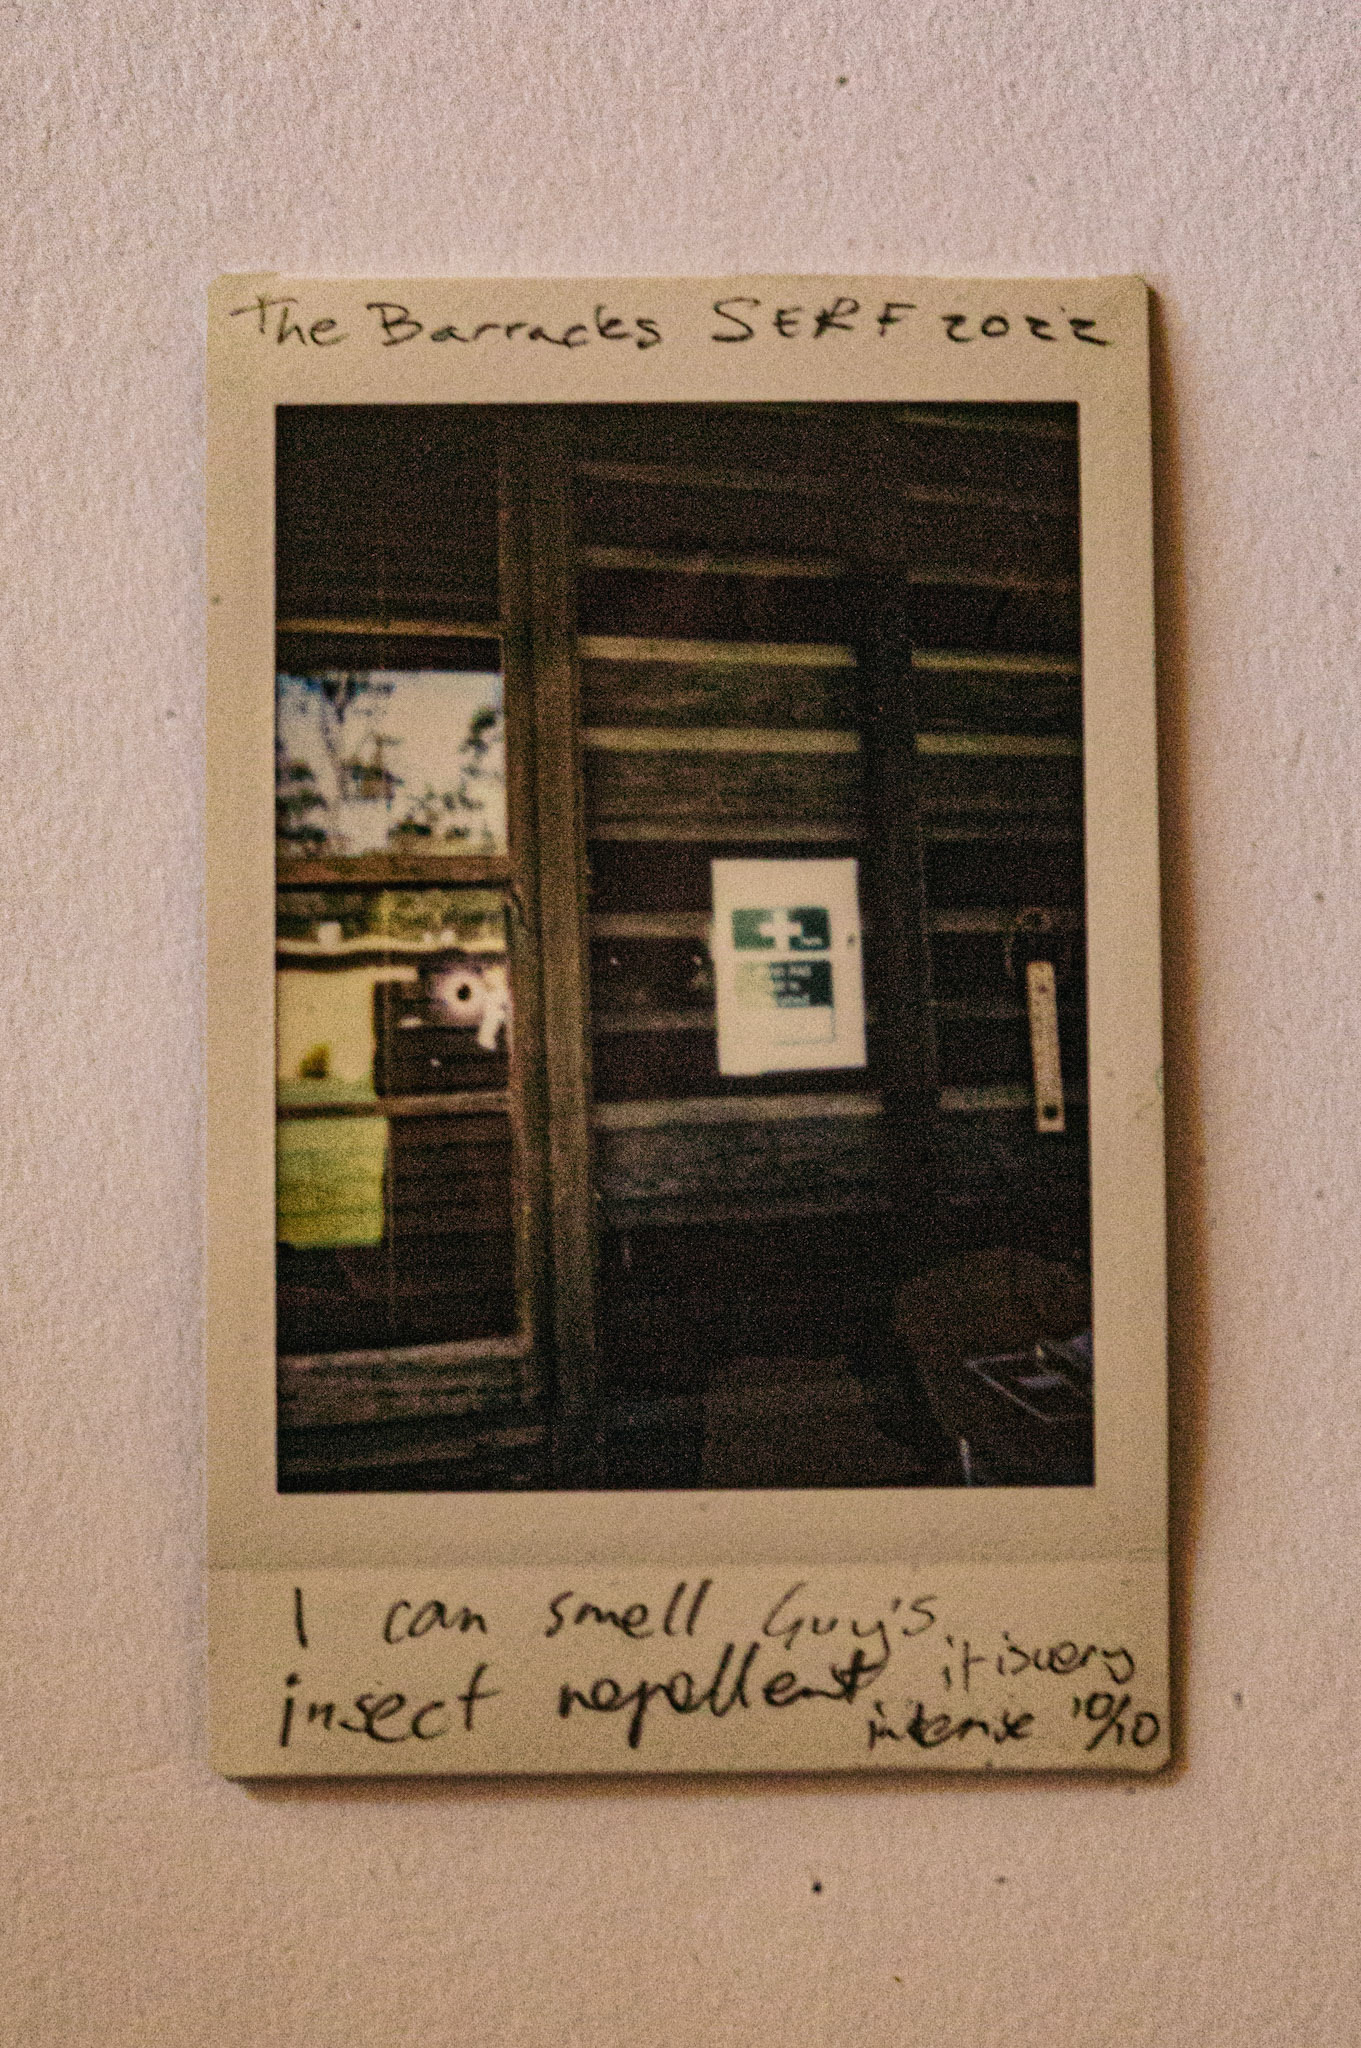 The Barracks SERF 2022
I can smell Guy's
insect repellent
it is very
intense 10/10